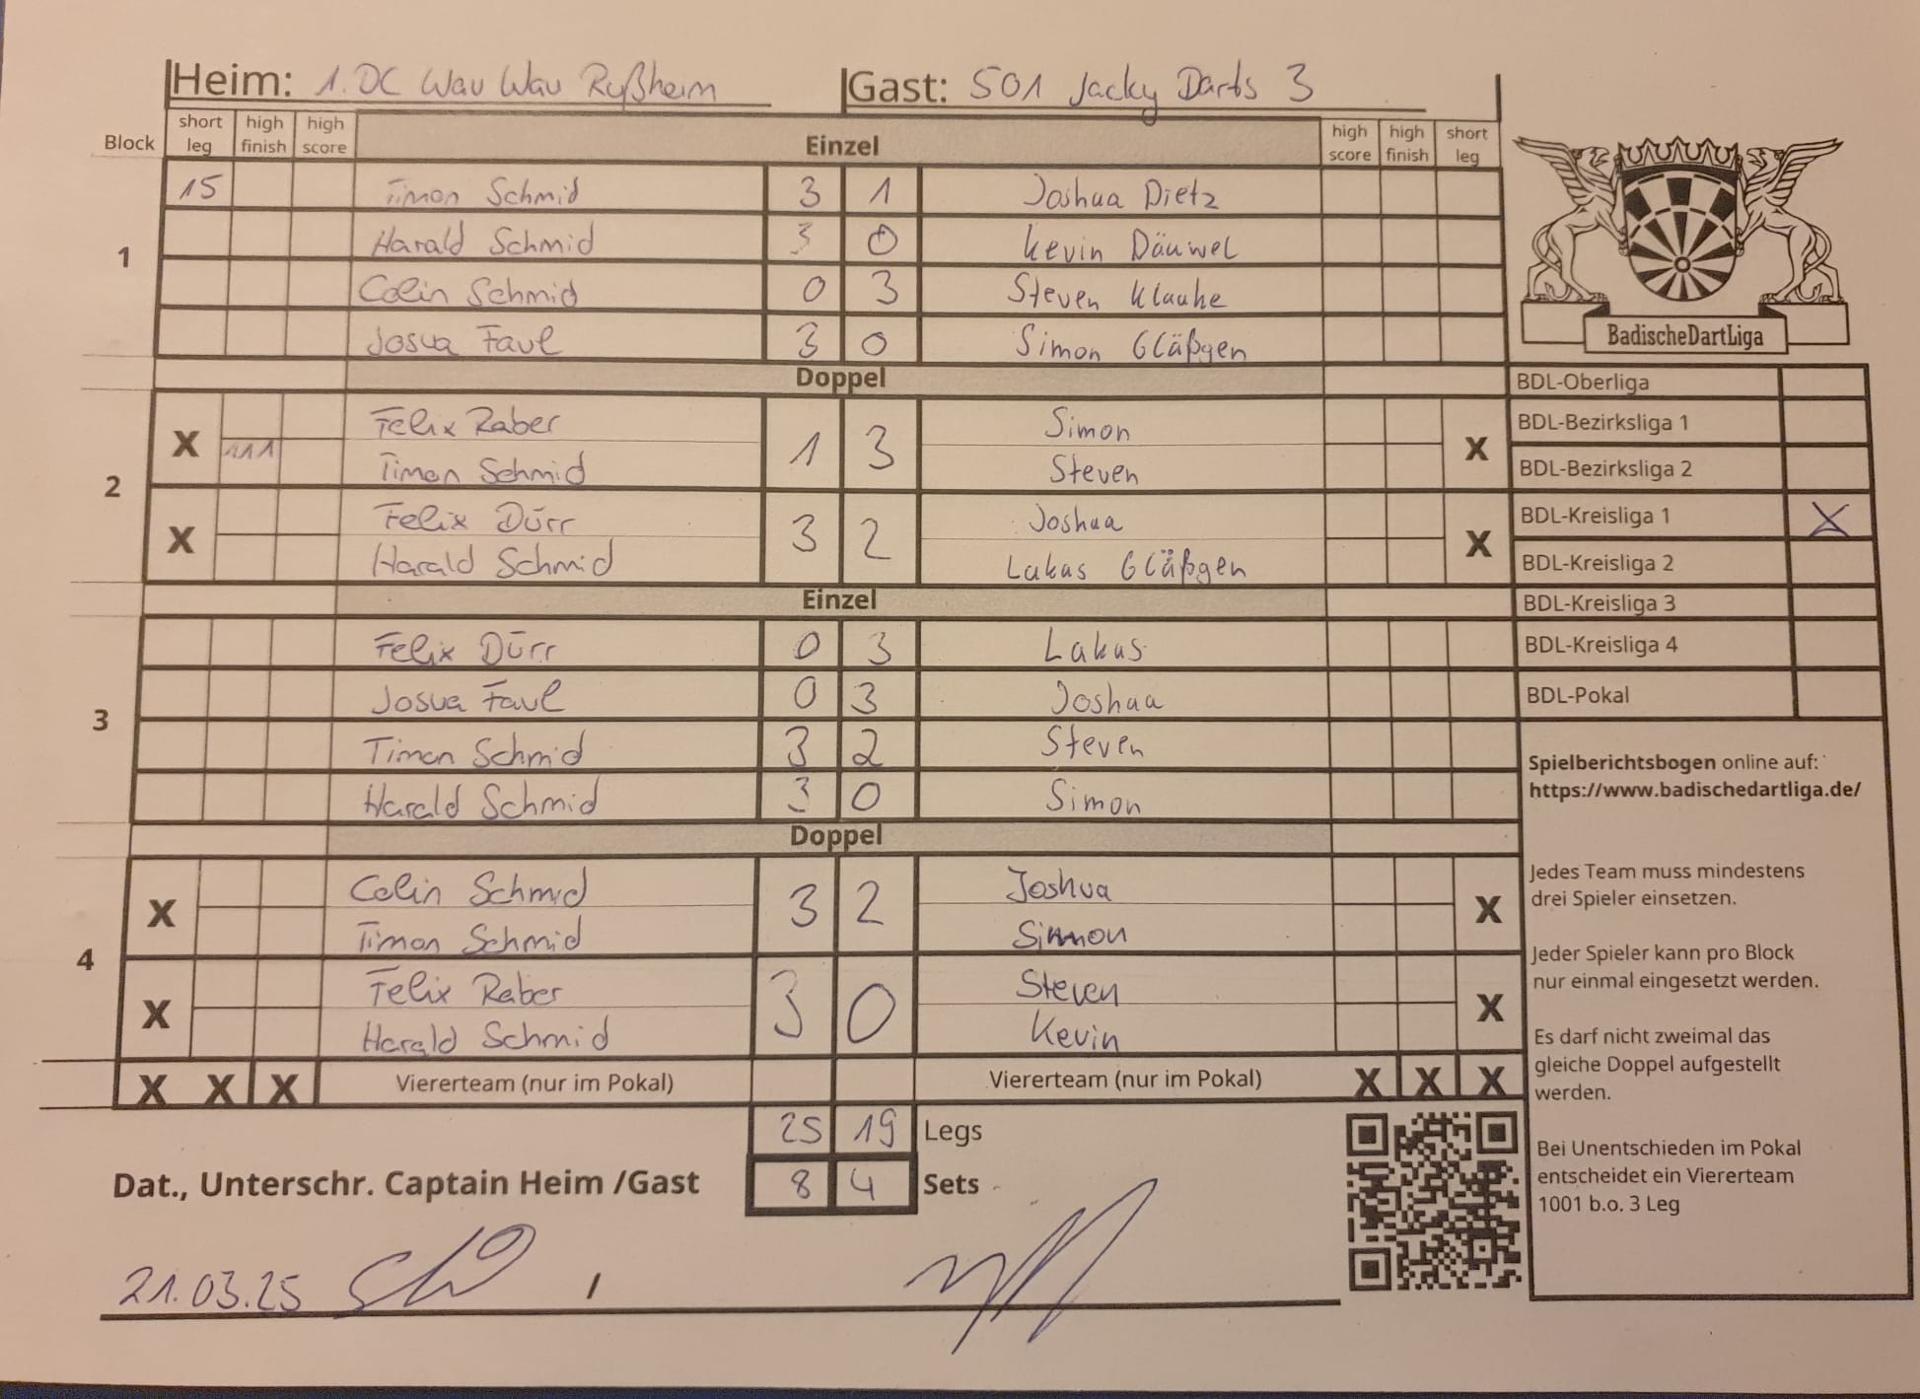 Heim: 1. DC Wau Wau Rußheim Gast: 501 Jacky Darts 3
Block short leg high finish high score Einzel high score high finish short leg
1
15 Timon Schmid 3 1 Joshua Dietz
Harald Schmid 3 0 Kevin Däuwel
Colin Schmid 0 3 Steven Klauke
Josua Faul 3 0 Simon Gläßgen
BadischeDartLiga
Doppel
2
X Felix Raber 1 3 Simon X
111 Timon Schmid Steven
X Felix Dürr 3 2 Joshua X
Harald Schmid Lukas Gläßgen
Einzel
3
Felix Dürr 0 3 Lukas
Josua Faul 0 3 Joshua
Timon Schmid 3 2 Steven
Harald Schmid 3 0 Simon
Doppel
4
X Colin Schmid 3 2 Joshua X
Timon Schmid Simon
X Felix Raber 3 0 Steven X
Harald Schmid Kevin
X X X Viererteam (nur im Pokal) Viererteam (nur im Pokal) X X X
25 19 Legs
Dat., Unterschr. Captain Heim /Gast 8 4 Sets
21.03.25 /
BDL-Oberliga
BDL-Bezirksliga 1
BDL-Bezirksliga 2
BDL-Kreisliga 1 X
BDL-Kreisliga 2
BDL-Kreisliga 3
BDL-Kreisliga 4
BDL-Pokal
Spielberichtsbogen online auf:
https://www.badischedartliga.de/
Jedes Team muss mindestens
drei Spieler einsetzen.
Jeder Spieler kann pro Block
nur einmal eingesetzt werden.
Es darf nicht zweimal das
gleiche Doppel aufgestellt
werden.
Bei Unentschieden im Pokal
entscheidet ein Viererteam
1001 b.o. 3 Leg